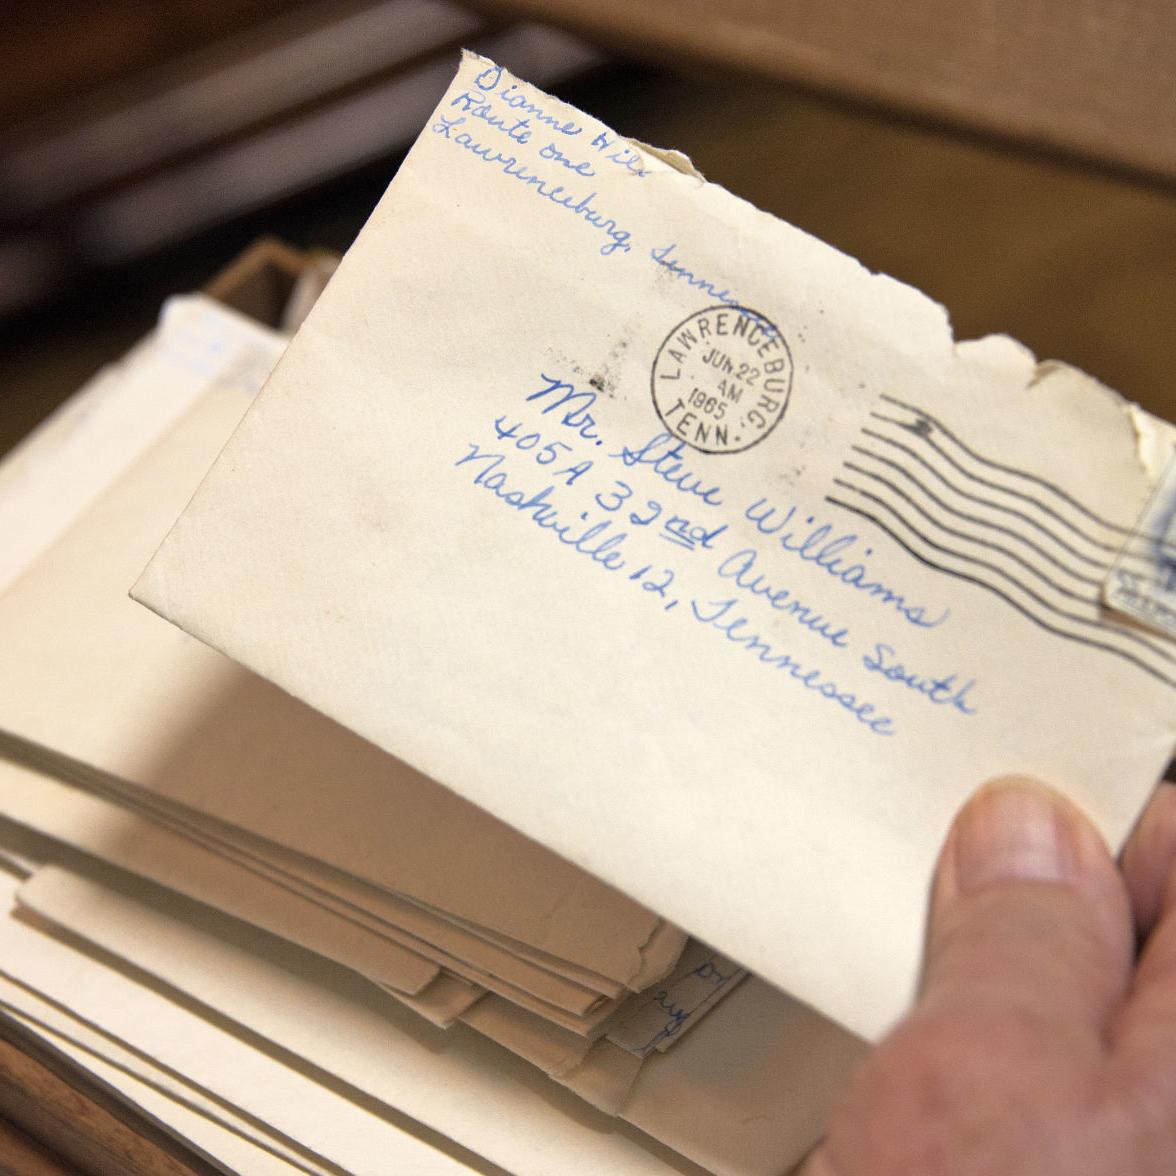 Dianne
Route one
Lawrenceburg, Tennessee
LAWRENCEBURG,
JUN 22
AM
1965
TENN.
Mr. Steve Williams
405A 32nd Avenue South
Nashville 12, Tennessee